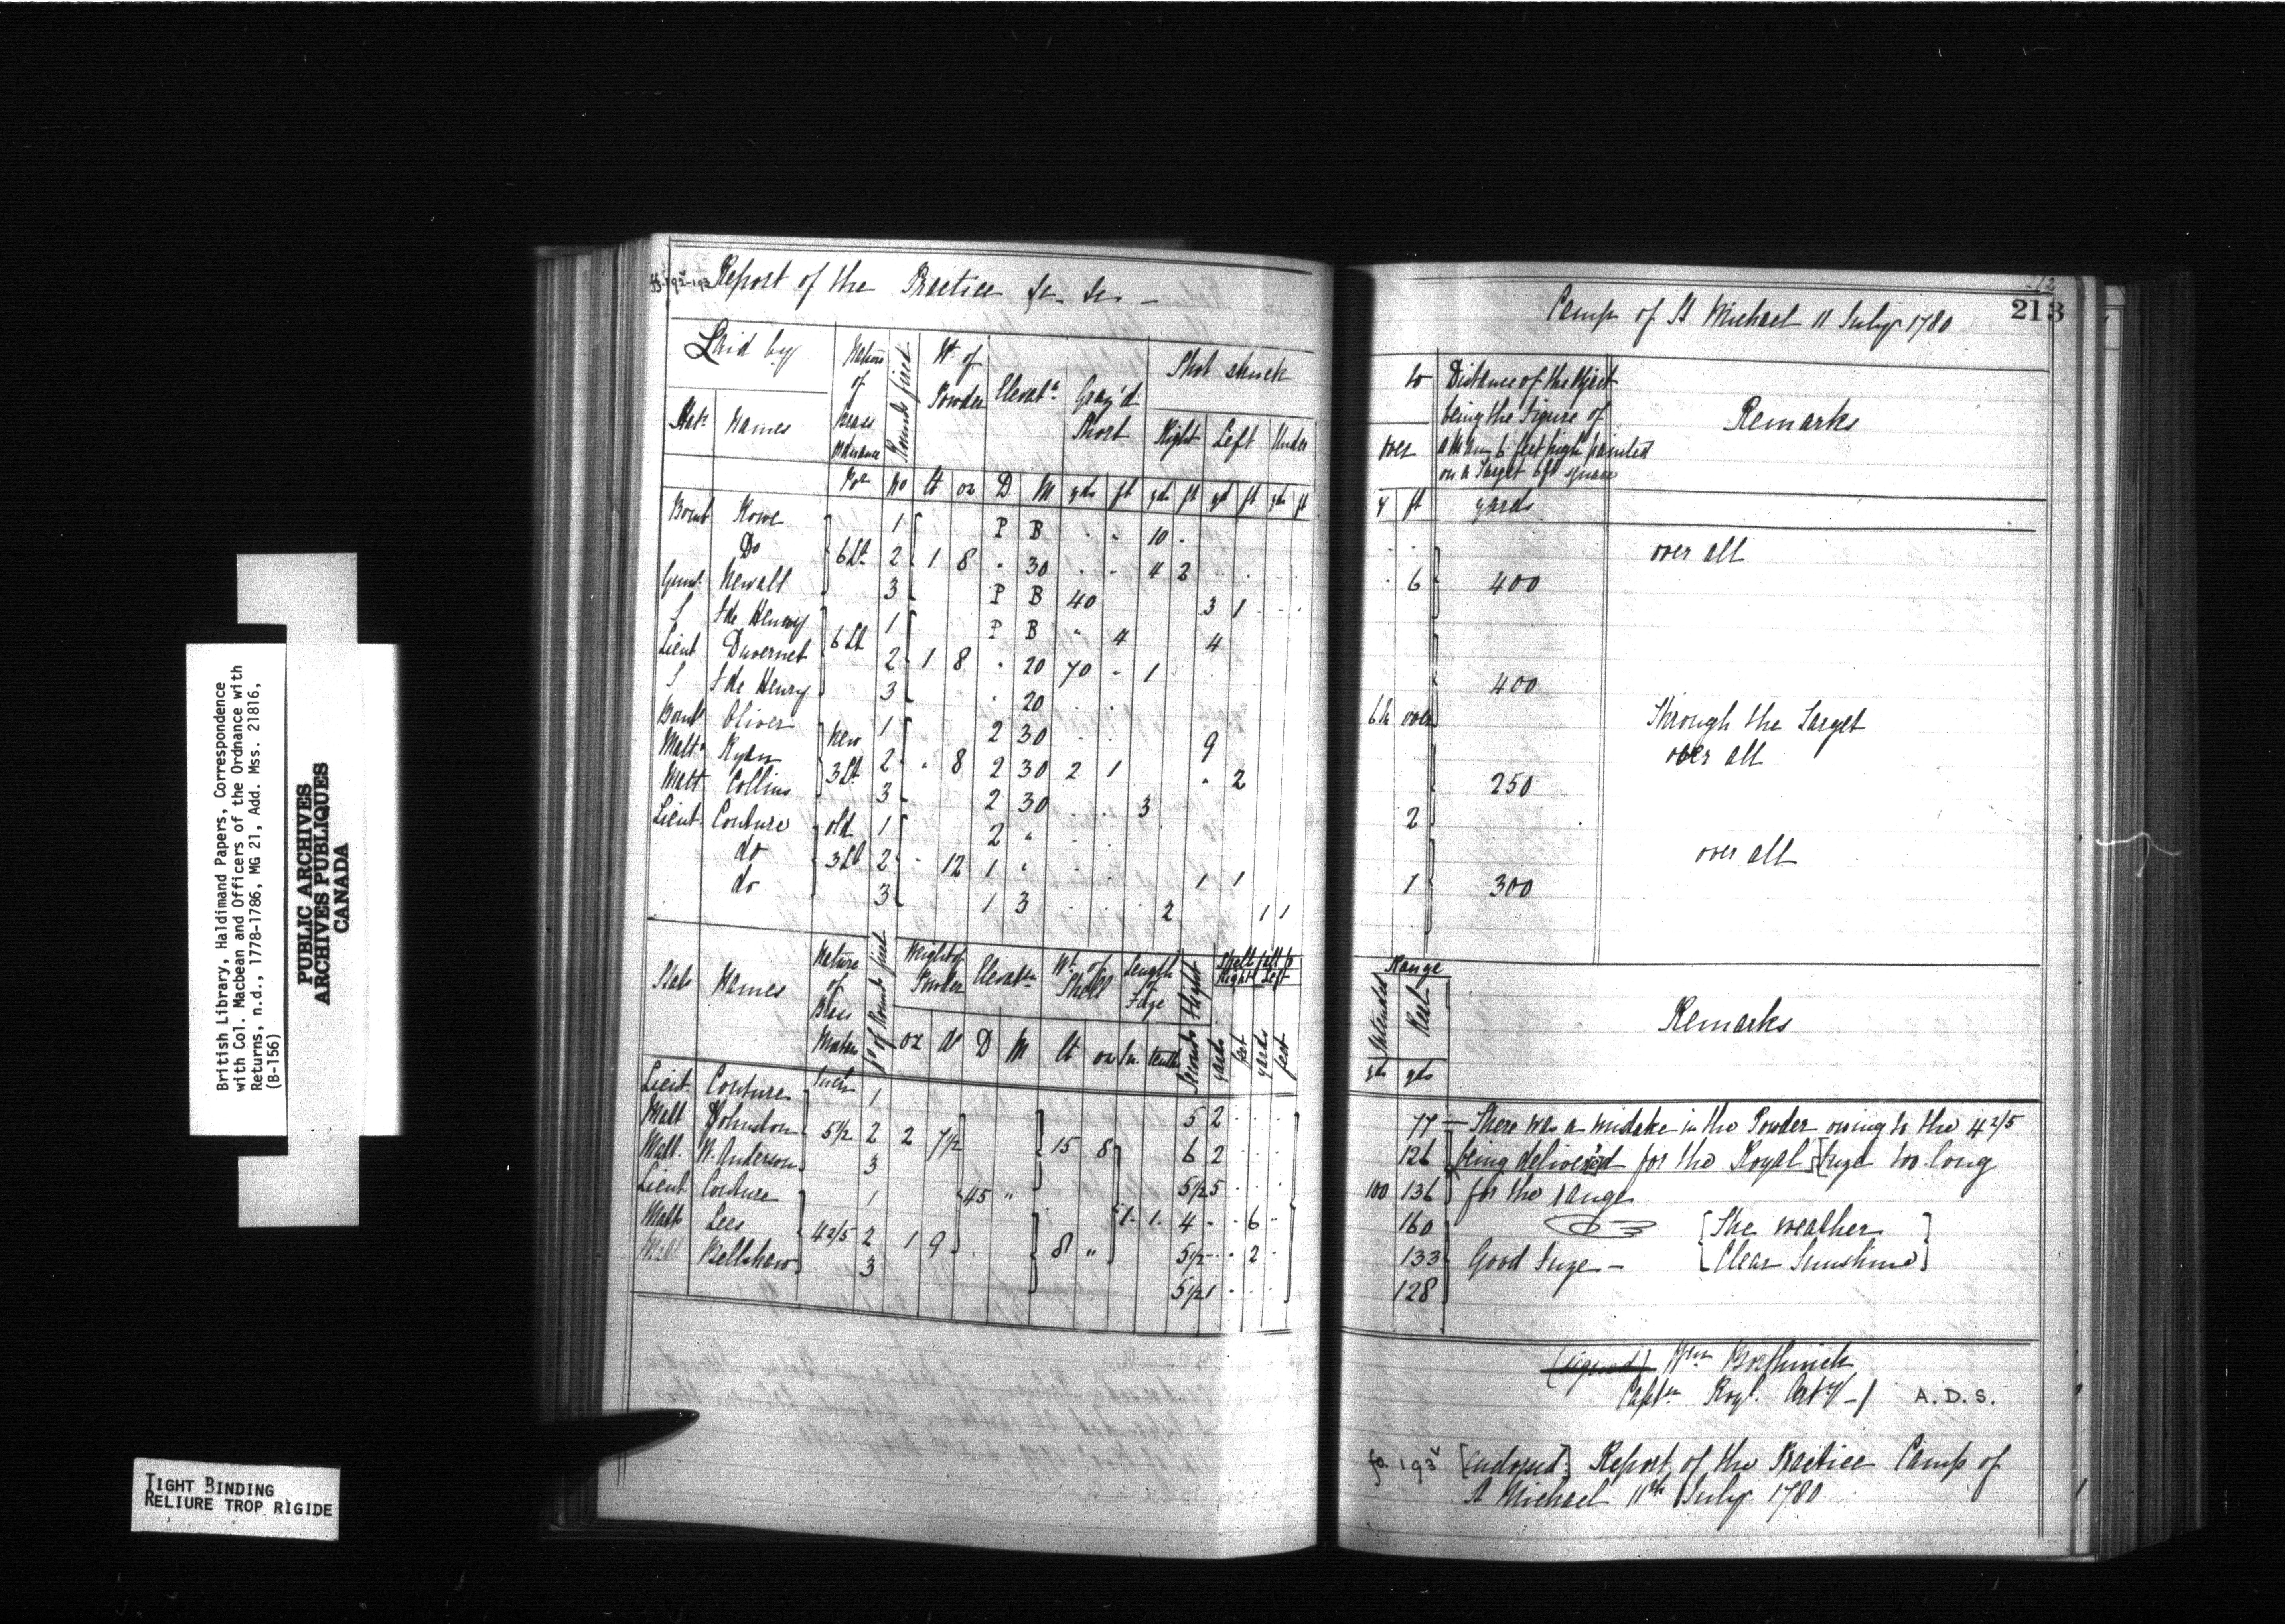 British Library, Haldimand Papers, Correspondence
with Col. Macbean and Officers of the Ordnance with
Returns, n.d., 1778-1786, MG 21, Add. Mss. 21816,
(B-156)
PUBLIC ARCHIVES
ARCHIVES PUBLIQUES
CANADA
TIGHT BINDING
RELIURE TROP RIGIDE
ff. 192v-193 Report of the Practice &c. &c. —
Laid by Nature of Brass Ordnance Rounds fired Wt. of Powder Elevatn. Graz'd Short Shot struck
Statn. Names Right Left Under
Por No lt oz D M yds ft yds ft yd ft yds ft
Bomb Rowe 1 P B . . 10 .
Do 6 Lt. 2 1 8 . 30 . . 4 2 . .
Gunr. Newall 3 P B 40 3 1 . .
S fde Henry 1 P B " 4 4
Lieut Duvernet 6 Lt 2 1 8 . 20 70 . 1
S fde Henry 3 . 20 . .
Bombr Oliver New 1 2 30 . . 9
Matt. Ryan 3 Lt. 2 . 8 2 30 2 1 . 2
Matt Collins 3 2 30 . . 3
Lieut. Couture old 1 2 " . .
do 3 Lt 2 . 12 1 " . . 1 1
do 3 1 3 . . . 2 1 1
Stats Names Nature of Brass Mortars No of Rounds fired Weight of Powder Elevatn. Wt. of Shell Length of Fuze Flight Shells fell to Right Left
oz dr D M lt oz In. tenths Seconds yards feet yards feet
Lieut. Couture Inch 1 5 2 . . .
Matt Johnston 5 1/2 2 2 7 1/2 15 8 6 2 . . .
Matt. W. Anderson 3 5 1/2 5 . . .
Lieut Couture 1 45 " 1. 1. 4 . . 6 .
Matt Lees 4 2/5 2 1 9 8 " 5 1/2 . . 2 .
Matt Bellshaw 3 5 1/2 1 . . .
212
213
Camp of St Michael 11 July 1780
to Distance of the Object
being the Figure of
over a Man 6 feet high painted
on a Target 6ft square
Remarks
y ft yards
over all
. 6 400
400
6 in over Through the Target
over all
250
2
over all
1 300
Range
Intended Real
Remarks
yds yds
77 — There was a mistake in the Powder owing to the 4 2/5
126 being delivered for the Royal [Fuze too long
100 136 for the range
160 [The weather
133 Good Fuze — [Clear Sunshine]
128
(signed) Wm Borthwick
Captn. Royl. Arty —/ A.D.S.
fo. 193v [endorsed:] Report of the Practice Camp of
St Michael 11th July 1780